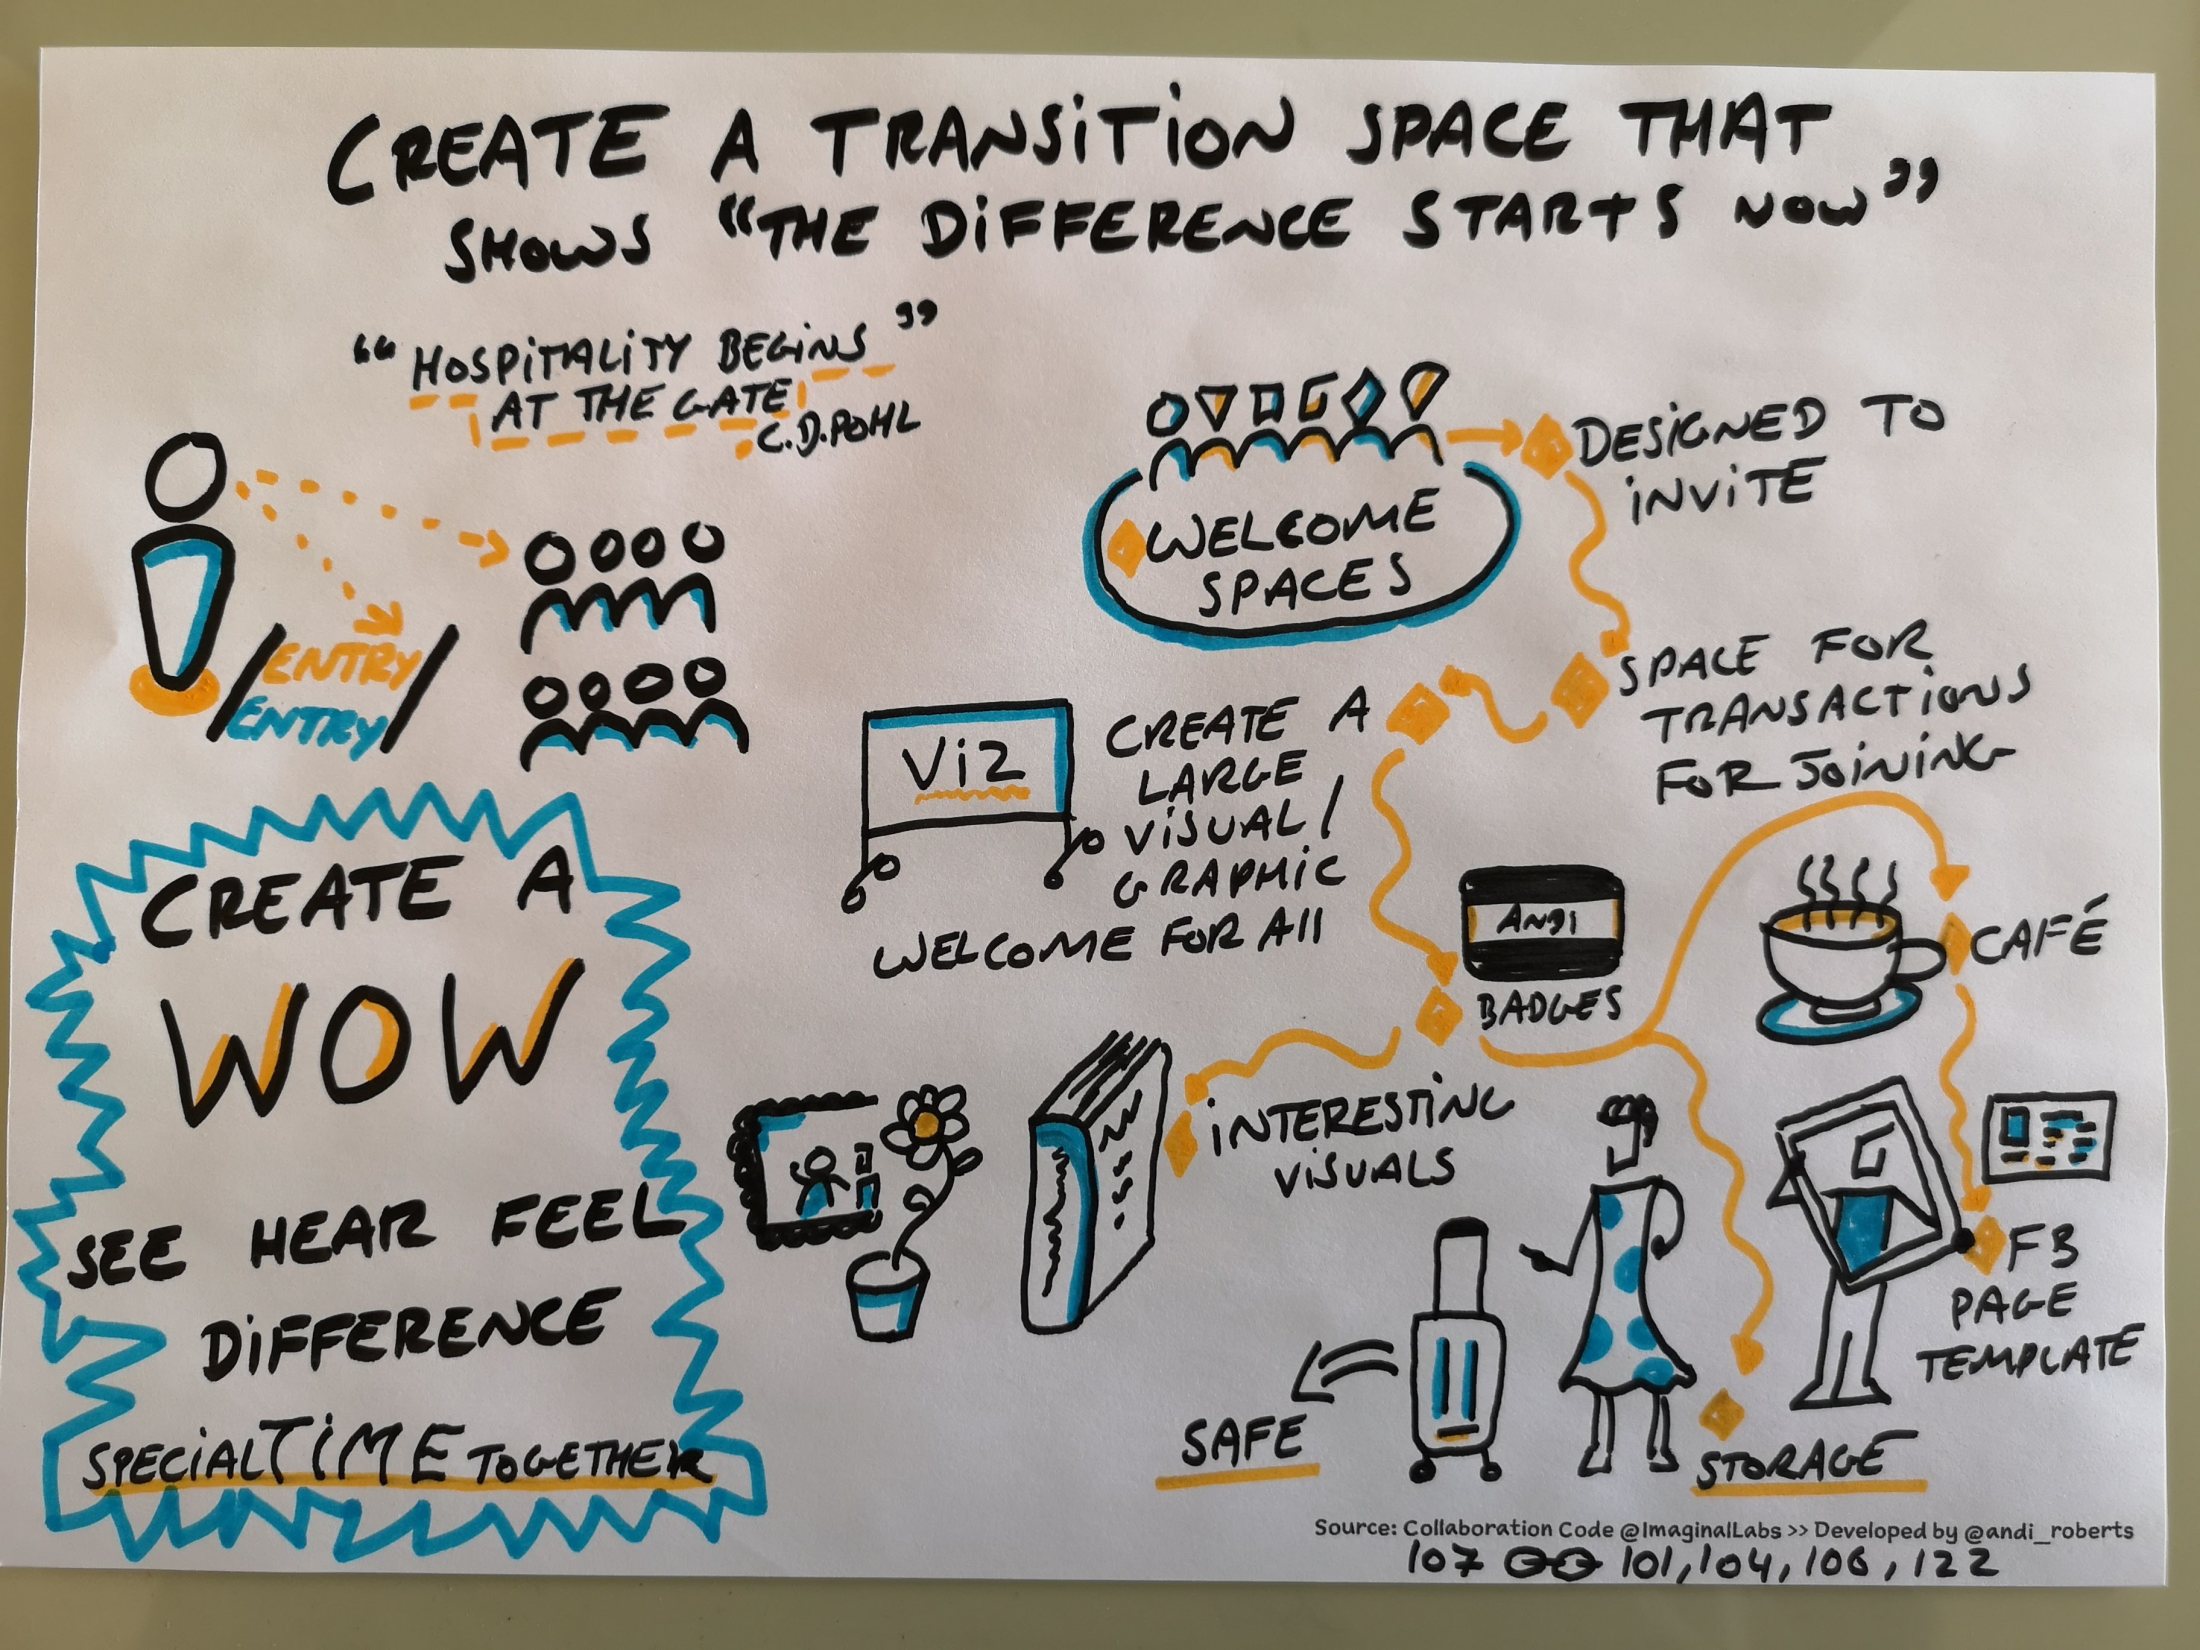 CREATE A TRANSITION SPACE THAT
SHOWS "THE DIFFERENCE STARTS NOW"
"HOSPITALITY BEGINS"
AT THE GATE
C.D.POHL
ENTRY
ENTRY
CREATE A
WOW
SEE HEAR FEEL
DIFFERENCE
SPECIAL TIME TOGETHER
WELCOME
SPACES
DESIGNED TO
INVITE
SPACE FOR
TRANSACTIONS
FOR JOINING
Viz
CREATE A
LARGE
VISUAL/
GRAPHIC
WELCOME FOR All
ANDI
BADGES
CAFÉ
INTERESTING
VISUALS
FB
PAGE
TEMPLATE
SAFE
STORAGE
Source: Collaboration Code @ImaginalLabs >> Developed by @andi_roberts
107 101, 104, 106, 122